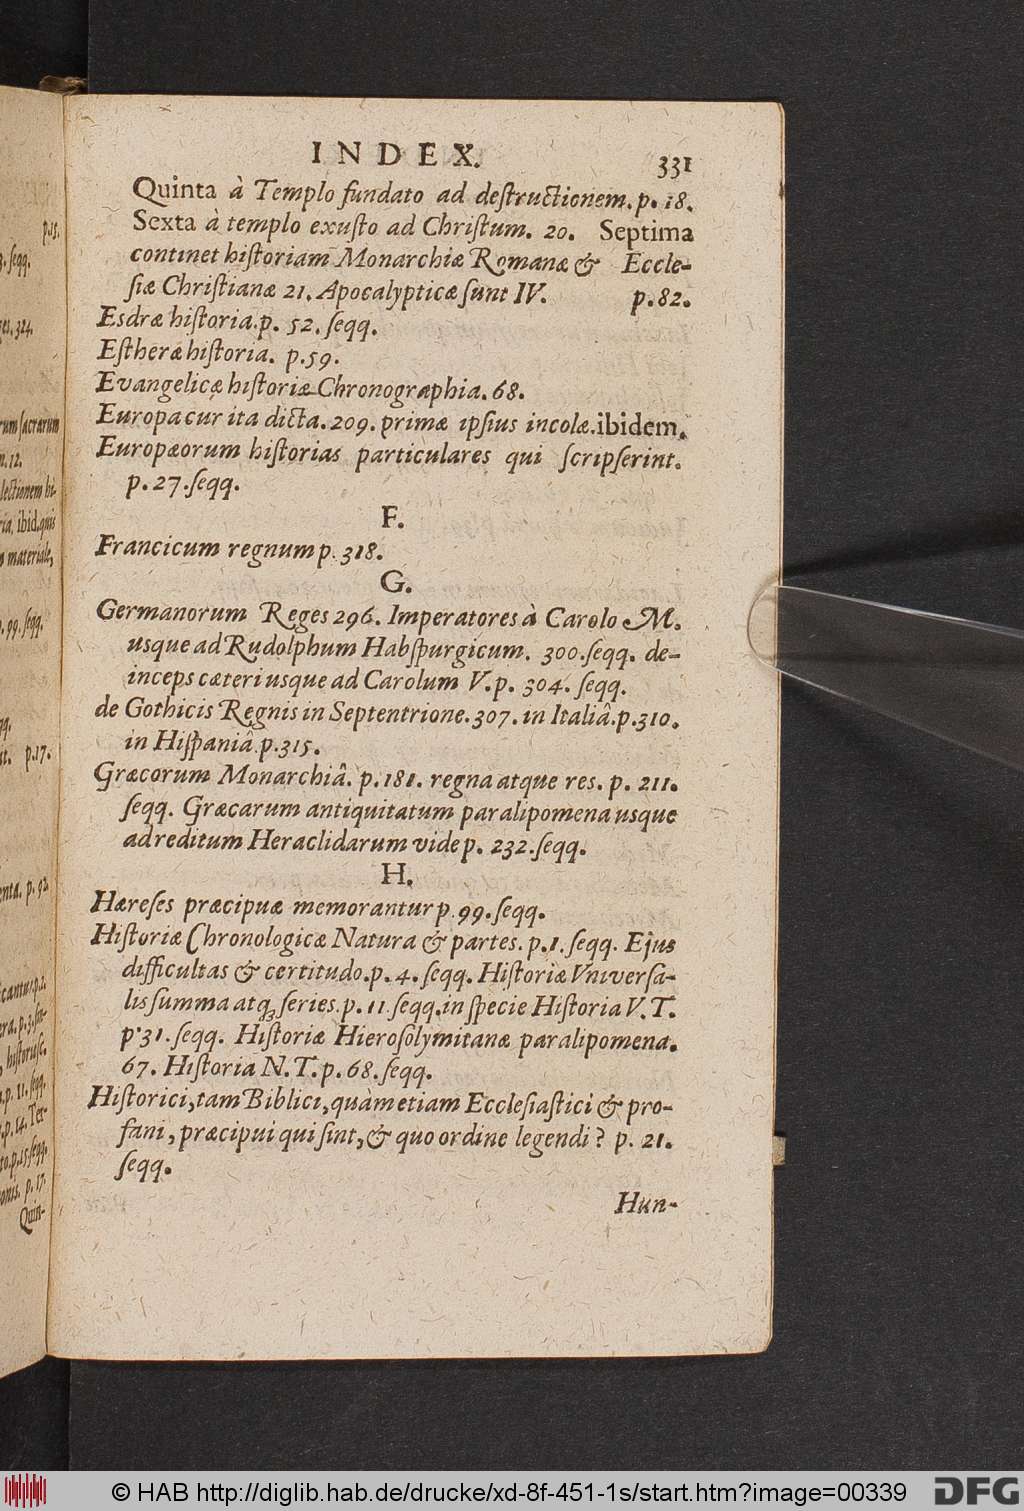 INDEX. 331
Quinta à Templo fundato ad deſtructionem. p. 18.
Sexta à templo exuſto ad Chriſtum. 20. Septima
continet hiſtoriam Monarchiæ Romanæ & Eccle-
ſiæ Chriſtianæ 21. Apocalypticæ ſunt IV. p. 82.
Esdræ hiſtoria. p. 52. ſeqq.
Eſtheræ hiſtoria. p. 59.
Evangelicæ hiſtoriæ Chronographia. 68.
Europa cur ita dicta. 209. primæ ipſius incolæ. ibidem.
Europæorum hiſtorias particulares qui ſcripſerint.
p. 27. ſeqq.
F.
Francicum regnum p. 318.
G.
Germanorum Reges 296. Imperatores à Carolo M.
usque ad Rudolphum Habſpurgicum. 300. ſeqq. de-
inceps cæteri usque ad Carolum V. p. 304. ſeqq.
de Gothicis Regnis in Septentrione. 307. in Italiâ. p. 310.
in Hiſpaniâ. p. 315.
Græcorum Monarchiâ. p. 181. regna atque res. p. 211.
ſeqq. Græcarum antiquitatum paralipomena usque
ad reditum Heraclidarum vide p. 232. ſeqq.
H.
Hæreſes præcipuæ memorantur p. 99. ſeqq.
Hiſtoriæ Chronologicæ Natura & partes. p. 1. ſeqq. Ejus
difficultas & certitudo. p. 4. ſeqq. Hiſtoriæ Vniverſa-
lis ſumma atq; ſeries. p. 11 ſeqq. in ſpecie Hiſtoria V. T.
p. 31. ſeqq. Hiſtoriæ Hieroſolymitanæ paralipomena.
67. Hiſtoria N. T. p. 68. ſeqq.
Hiſtorici, tam Biblici, quàm etiam Eccleſiaſtici & pro-
fani, præcipui qui ſint, & quo ordine legendi? p. 21.
ſeqq.
Hun-
© HAB http://diglib.hab.de/drucke/xd-8f-451-1s/start.htm?image=00339
DFG